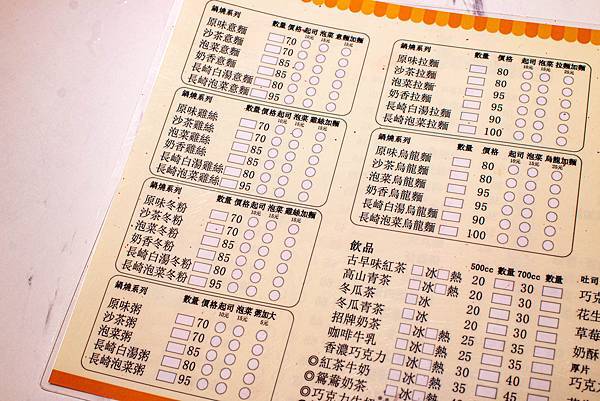 鍋燒系列 數量 價格 起司 泡菜 意麵加麵
10元 15元 15元
原味意麵 70
沙茶意麵 70
泡菜意麵 85
奶香意麵 85
長崎白湯意麵 80
長崎泡菜意麵 95
鍋燒系列 數量 價格 起司 泡菜 雞絲加麵
10元 15元 15元
原味雞絲 70
沙茶雞絲 70
泡菜雞絲 85
奶香雞絲 85
長崎白湯雞絲 80
長崎泡菜雞絲 95
鍋燒系列 數量 價格 起司 泡菜 雞絲加麵
10元 15元 15元
原味冬粉 70
沙茶冬粉 70
泡菜冬粉 85
奶香冬粉 85
長崎白湯冬粉 80
長崎泡菜冬粉 95
鍋燒系列 數量 價格 起司 泡菜 粥加大
10元 15元 5元
原味粥 70
沙茶粥 70
泡菜粥 85
奶香粥 85
長崎白湯粥 80
長崎泡菜粥 95
鍋燒系列 數量 價格 起司 泡菜 拉麵加麵
10元 15元 25元
原味拉麵 80
沙茶拉麵 80
泡菜拉麵 95
奶香拉麵 95
長崎白湯拉麵 90
長崎泡菜拉麵 100
鍋燒系列 數量 價格 起司 泡菜 烏龍加麵
10元 15元 25元
原味烏龍麵 80
沙茶烏龍麵 80
泡菜烏龍麵 95
奶香烏龍麵 95
長崎白湯烏龍麵 90
長崎泡菜烏龍麵 100
飲品 500cc 數量 700cc 數量
古早味紅茶 冰 熱 20 30
高山青茶 冰 熱 20 30
冬瓜茶 冰 20 30
冬瓜青茶 冰 20 30
招牌奶茶 冰 熱 25 35
咖啡牛乳 冰 熱 25 35
香濃巧克力 冰 熱 25 35
◎紅茶牛奶 冰 熱 35 45
◎鴛鴦奶茶
◎巧克力牛
吐司
巧克
花生
草莓
奶酥
厚片
巧克
花